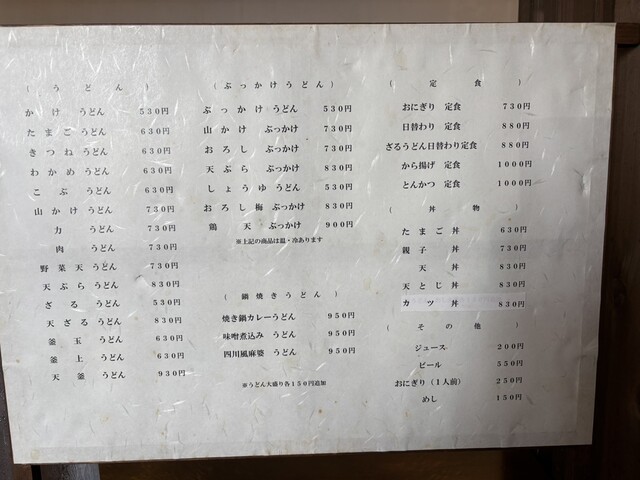 ( う ど ん )
かけ うどん 530円
たまご うどん 630円
きつね うどん 630円
わかめ うどん 630円
こぶ うどん 630円
山かけ うどん 730円
力 うどん 730円
肉 うどん 730円
野菜天 うどん 730円
天ぷら うどん 830円
ざる うどん 530円
天ざる うどん 830円
釜玉 うどん 630円
釜上 うどん 630円
天釜 うどん 930円
( ぶ っ か け う ど ん )
ぶっかけ うどん 530円
山かけ ぶっかけ 730円
おろし ぶっかけ 730円
天ぷら ぶっかけ 830円
しょうゆ うどん 530円
おろし梅 ぶっかけ 830円
鶏天 ぶっかけ 900円
※上記の商品は温・冷あります
( 鍋 焼 き う ど ん )
焼き鍋カレーうどん 950円
味噌煮込み うどん 950円
四川風麻婆 うどん 950円
※うどん大盛り各150円追加
( 定 食 )
おにぎり 定食 730円
日替わり 定食 880円
ざるうどん日替わり定食 880円
から揚げ 定食 1000円
とんかつ 定食 1000円
( 丼 物 )
たまご 丼 630円
親子 丼 730円
天 丼 830円
天とじ 丼 830円
カツ 丼 830円
( そ の 他 )
ジュース 200円
ビール 550円
おにぎり(1人前) 250円
めし 150円